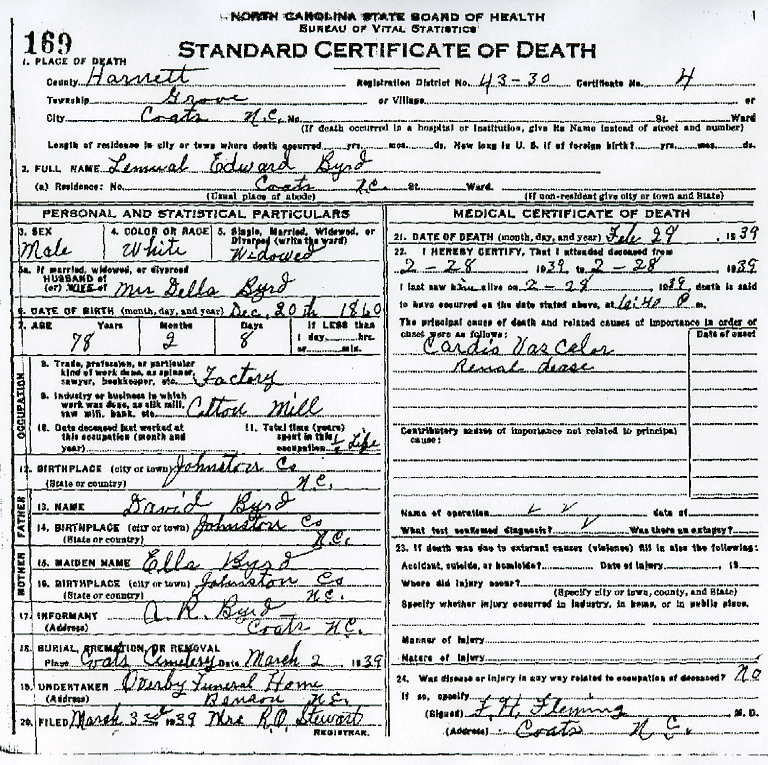 NORTH CAROLINA STATE BOARD OF HEALTH
BUREAU OF VITAL STATISTICS
169
STANDARD CERTIFICATE OF DEATH
1. PLACE OF DEATH
County Harnett Registration District No. 43-30 Certificate No. 4
Township Grove or Village or
City Coats N.C. No. St. Ward
(If death occurred in a hospital or institution, give its Name instead of street and number)
Length of residence in city or town where death occurred yrs. mos. ds. How long in U. S. if of foreign birth? yrs. mos. ds.
2. FULL NAME Lemual Edward Byrd
(a) Residence: No. Coats N.C. St. Ward.
(Usual place of abode) (If non-resident give city or town and State)
PERSONAL AND STATISTICAL PARTICULARS
3. SEX 4. COLOR OR RACE 5. Single, Married, Widowed, or Divorced (write the word)
Male White Widowed
5a. If married, widowed, or divorced
HUSBAND of
(or) WIFE of Mrs Della Byrd
6. DATE OF BIRTH (month, day, and year) Dec, 20th 1860
7. AGE Years Months Days If LESS than
1 day, hrs.
78 2 8 or min.
OCCUPATION
8. Trade, profession, or particular
kind of work done, as spinner,
sawyer, bookkeeper, etc. Factory
9. Industry or business in which
work was done, as silk mill,
saw mill, bank, etc. Cotton Mill
10. Date deceased last worked at
this occupation (month and
year)
11. Total time (years)
spent in this
occupation Life
12. BIRTHPLACE (city or town) Johnston Co
(State or country) N.C.
FATHER
13. NAME David Byrd
14. BIRTHPLACE (city or town) Johnston Co
(State or country) N.C.
MOTHER
15. MAIDEN NAME Ella Byrd
16. BIRTHPLACE (city or town) Johnston Co
(State or country) N.C.
17. INFORMANT A. R. Byrd
(Address) Coats N.C.
18. BURIAL, CREMATION, OR REMOVAL
Place Coats Cemetery Date March 2 1939
19. UNDERTAKER Overby Funeral Home
(Address) Benson N.C.
20. FILED March 3rd 1939 Mrs. R.O. Stewart
REGISTRAR.
MEDICAL CERTIFICATE OF DEATH
21. DATE OF DEATH (month, day, and year) Feb 28, 1939
22. I HEREBY CERTIFY, That I attended deceased from
2-28 1939 to 2-28 1939
I last saw him alive on 2-28 1939, death is said
to have occurred on the date stated above, at P m.
The principal cause of death and related causes of importance in order of
onset were as follows: Date of onset
Cardio Vascular
Renal
Contributory causes of importance not related to principal
cause:
Name of operation date of
What test confirmed diagnosis? Was there an autopsy?
23. If death was due to external causes (violence) fill in also the following:
Accident, suicide, or homicide? Date of injury 19
Where did injury occur?
(Specify city or town, county, and State)
Specify whether injury occurred in industry, in home, or in public place.
Manner of injury
Nature of injury
24. Was disease or injury in any way related to occupation of deceased? No
If so, specify
(Signed) F. H. Fleming M. D.
(Address) Coats N.C.